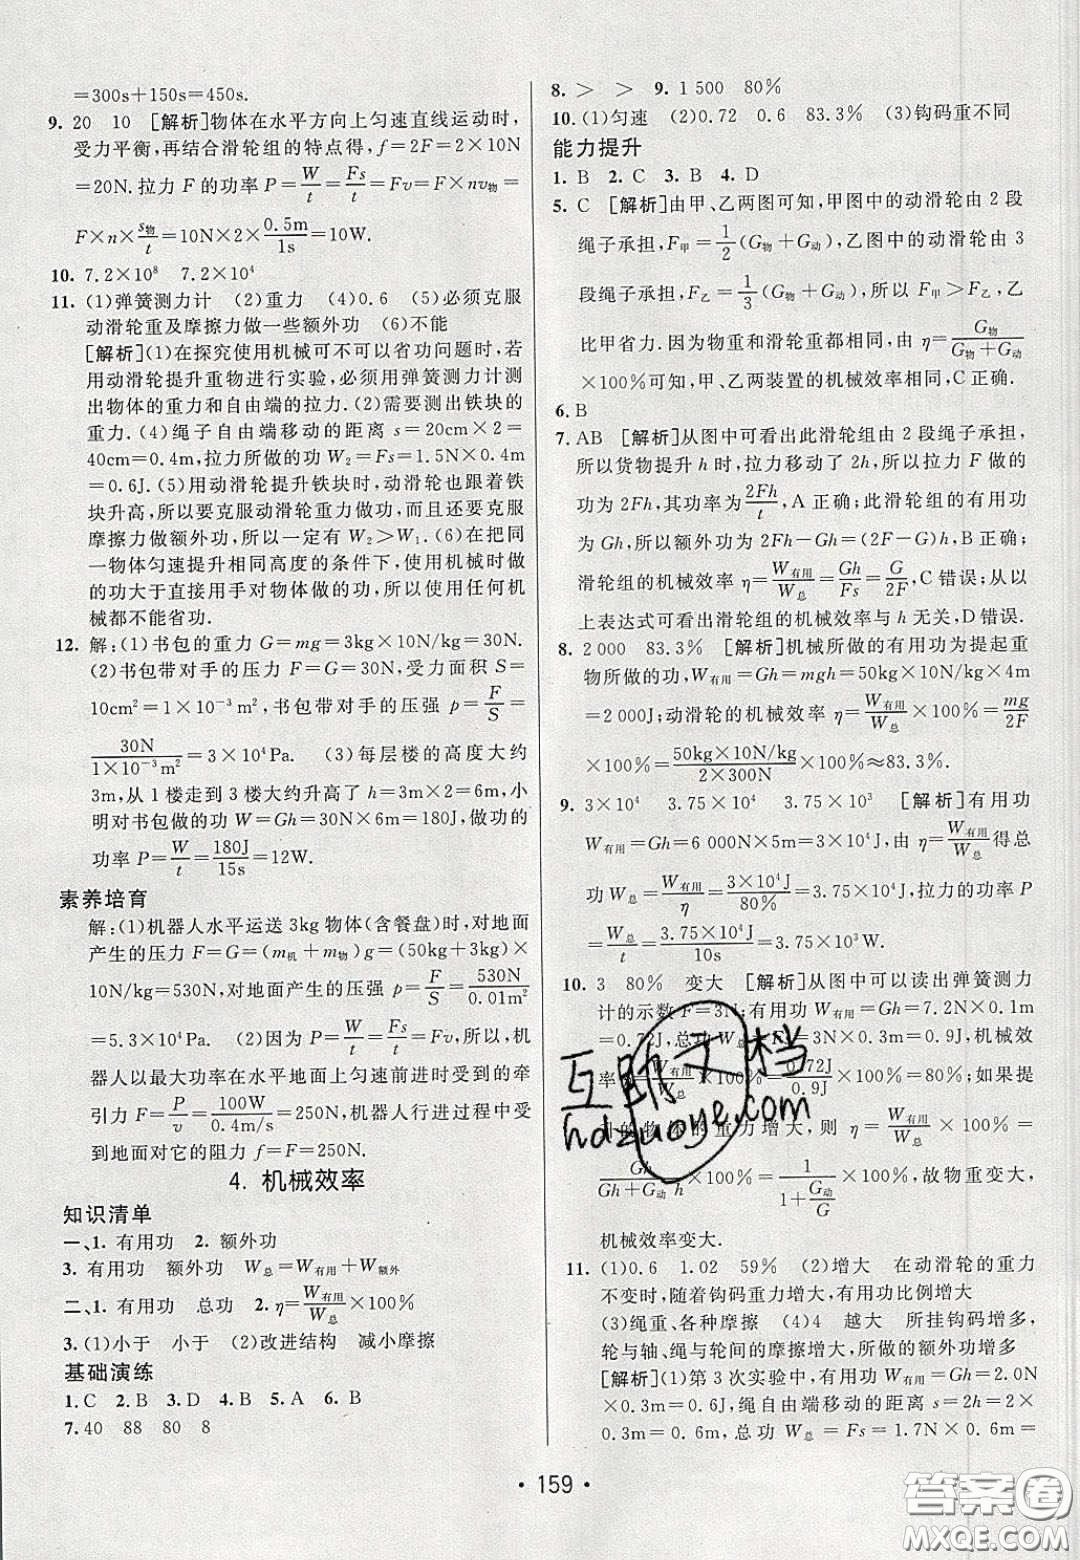 =300s+150s=450s.
9. 20 10 [解析]物体在水平方向上匀速直线运动时,
受力平衡,再结合滑轮组的特点得,f=2F=2×10N
=20N.拉力 F 的功率 P=W/t=Fs/t=Fv=F×nv物=
F×n×s物/t=10N×2×0.5m/1s=10W.
10. 7.2×10⁸ 7.2×10⁴
11. (1)弹簧测力计 (2)重力 (4)0.6 (5)必须克服
动滑轮重及摩擦力做一些额外功 (6)不能
[解析](1)在探究使用机械可不可以省功问题时,若
用动滑轮提升重物进行实验,必须用弹簧测力计测
出物体的重力和自由端的拉力.(2)需要测出铁块的
重力.(4)绳子自由端移动的距离 s=20cm×2=
40cm=0.4m,拉力所做的功 W₂=Fs=1.5N×0.4m
=0.6J.(5)用动滑轮提升铁块时,动滑轮会随着铁
块升高,所以要克服动滑轮重力做功,而且还要克服
摩擦力做额外功,所以一定有 W₂>W₁.(6)在把同
一物体匀速提升相同高度的条件下,使用机械时做
的功大于直接用手对物体做的功,所以使用任何机
械都不能省功.
12. 解:(1)书包的重力 G=mg=3kg×10N/kg=30N.
(2)书包带对手的压力 F=G=30N,受力面积 S=
10cm²=1×10⁻³m²,书包带对手的压强 p=F/S=
30N/1×10⁻³m²=3×10⁴Pa. (3)每层楼的高度大约
3m,从 1 楼走到 3 楼大约升高了 h=3m×2=6m,小
明对书包做的功 W=Gh=30N×6m=180J,做功的
功率 P=W/t=180J/15s=12W.
素养培育
解:(1)机器人水平运送 3kg 物体(含餐盘)时,对地面
产生的压力 F=G=(m机+m物)g=(50kg+3kg)×
10N/kg=530N,对地面产生的压强 p=F/S=530N/0.01m²
=5.3×10⁴Pa. (2)因为 P=W/t=Fs/t=Fv,所以,机
器人以最大功率在水平地面上匀速前进时受到的牵
引力 F=P/v=100W/0.4m/s=250N,机器人行进过程中受
到地面对它的阻力 f=F=250N.
4. 机械效率
知识清单
一、1. 有用功 2. 额外功
3. 有用功 额外功 W总=W有用+W额外
二、1. 有用功 总功 2. η=W有用/W总×100%
3. (1)小于 小于 (2)改进结构 减小摩擦
基础演练
1. C 2. B 3. D 4. B 5. A 6. B
7. 40 88 80 8
8. > > 9. 1 500 80%
10. (1)匀速 (2)0.72 0.6 83.3% (3)钩码重不同
能力提升
1. B 2. C 3. B 4. D
5. C [解析]由甲、乙两图可知,甲图中的动滑轮由 2 段
绳子承担,F甲=1/2(G物+G动),乙图中的动滑轮由 3
段绳子承担,F乙=1/3(G物+G动),所以 F甲>F乙,乙
比甲省力.因为物重和滑轮重都相同,由 η=G物/G物+G动
×100%可知,甲、乙两装置的机械效率相同,C 正确.
6. B
7. AB [解析]从图中可看出此滑轮组由 2 段绳子承担,
所以货物提升 h 时,拉力移动了 2h,所以拉力 F 做的
功为 2Fh,其功率为2Fh/t,A 正确;此滑轮组的有用功
为 Gh,所以额外功为 2Fh－Gh=(2F－G)h,B 正确;
滑轮组的机械效率 η=W有用/W总=Gh/Fs=G/2F,C 错误;从以
上表达式可看出滑轮组的机械效率与 h 无关,D 错误.
8. 2 000 83.3% [解析]机械所做的有用功为提起重
物所做的功,W有用=Gh=mgh=50kg×10N/kg×4m
=2 000J;动滑轮的机械效率 η=W有用/W总×100%=mg/2F
×100%=50kg×10N/kg/2×300N×100%≈83.3%.
9. 3×10⁴ 3.75×10⁴ 3.75×10³ [解析]有用功
W有用=Gh=6 000N×5m=3×10⁴J,由 η=W有用/W总得总
功 W总=W有用/η=3×10⁴J/80%=3.75×10⁴J,拉力的功率 P
=W总/t=3.75×10⁴J/10s=3.75×10³W.
10. 3 80% 变大 [解析]从图中可以读出弹簧测力
计的示数 F=3N;有用功 W有用=Gh=7.2N×0.1m
=0.72J,总功 W总=Fs=3N×0.3m=0.9J,机械效
率 η=W有用/W总×100%=0.72J/0.9J×100%=80%;如果提
的物体的重力增大,则 η=W有用/W总×100%=
Gh/Gh+G动h×100%=1/1+G动/G×100%,故物重变大,
机械效率变大.
11. (1)0.6 1.02 59% (2)增大 在动滑轮的重力
不变时,随着钩码重力增大,有用功比例增大
(3)绳重、各种摩擦 (4)4 越大 所挂钩码增多,
轮与轴、绳与轮间的摩擦增大,所做的额外功增多
[解析](1)第 3 次实验中,有用功 W有用=Gh=2.0N
×0.3m=0.6J,绳自由端移动的距离 s=2h=2×
0.3m=0.6m,总功 W总=Fs=1.7N×0.6m=
互助文档
hdzuoye.com
· 159 ·
答案圈
MXQE.COM